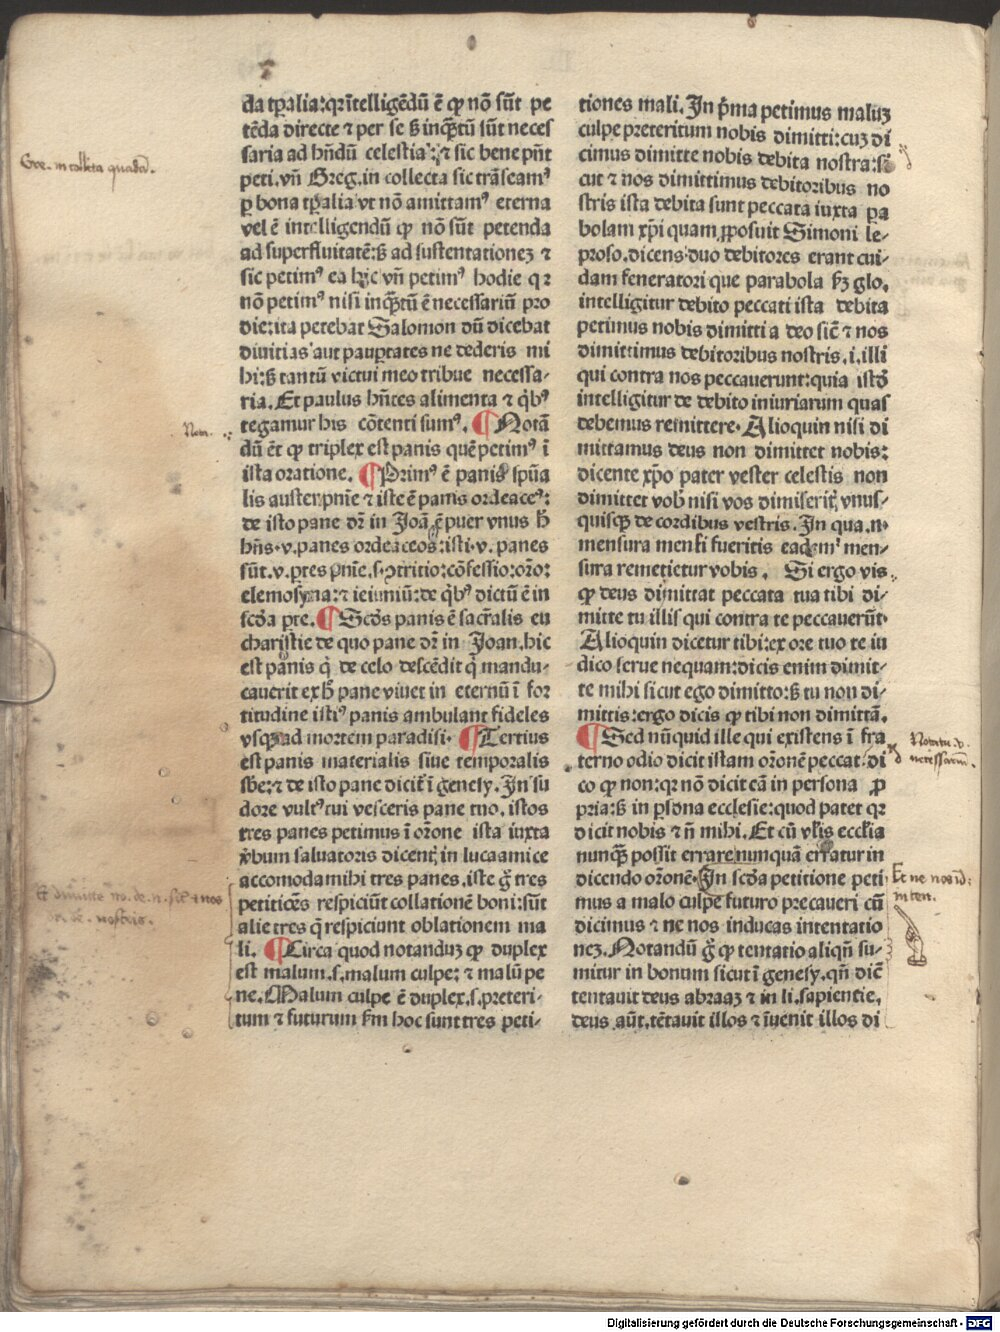 da tꝑalia: qꝛ ĩtelligẽdũ ẽ ꝙ nõ sũt pe
tẽda directe ⁊ per se ß inqꝫtũ sũt neces
saria ad hñdũ celestia: ⁊ sic bene pñt
peti. vñ Greg. in collecta sic trãseamꝰ
ꝑ bona tꝑalia vt nõ amittamꝰ eterna
vel ẽ intelligendũ ꝙ nõ sũt petenda
ad superfluitatẽ: ß ad sustentationeꝫ ⁊
sic petimꝰ ea hic vñ petimꝰ hodie qꝛ
nõ petimꝰ nisi inqꝫtũ ẽ necessariũ pro
die: ita petebat Salomon dũ dicebat
diuitias aut pauꝑtates ne dederis mi
hi: ß tantũ victui meo tribue necessa-
ria. Et paulus hñtes alimenta ⁊ qꝯbꝰ
tegamur his cõtenti sumꝰ. ¶ Notã
dũ ẽt ꝙ triplex est panis quẽ petimꝰ ĩ
ista oratione. ¶ Primꝰ ẽ panis spũa
lis auster pñie ⁊ iste ẽ panis ordeaceꝰ:
de isto pane dꝛ in Joã. ẽ puer vnus ħ
hñs .v. panes ordeaceos: isti .v. panes
sũt .v. ꝑtes pñie. s. ꝯtritio: cõfessio: orõ:
elemosyna: ⁊ ieiuniũ: de qꝯbꝰ dictũ ẽ in
scða ꝑte. ¶ Scðs panis ẽ sacr̃alis eu
charistie de quo pane dꝛ in Joan. hic
est panis q̃ de celo descẽdit q̃ mandu-
cauerit ex h̃ pane viuet in eternũ ĩ for
titudine istiꝰ panis ambulant fideles
vsqꝫ ad mortem paradisi. ¶ Tertius
est panis materialis siue temporalis
sbe: ⁊ de isto pane dicit̃ ĩ genesy. In su
dore vultꝰ tui vesceris pane tuo. istos
tres panes petimus ĩ orõne ista iuxta
v̾bum saluatoris dicent̃ in luca amice
accomoda mihi tres panes. iste g̃ tres
petitiões respiciũt collationẽ boni: sũt
alie tres q̃ respiciunt oblationem ma
li. ¶ Circa quod notanduꝫ ꝙ duplex
est malum. s. malum culpe: ⁊ malũ pe
ne. Malum culpe ẽ duplex. s. preteri-
tum ⁊ futurum ẜm hoc sunt tres peti-
tiones mali. In p̃ma petimus maluꝫ
culpe preteritum nobis dimitti: cuꝫ di
cimus dimitte nobis debita nostra: si
cut ⁊ nos dimittimus debitoribus no
stris ista debita sunt peccata iuxta pa
bolam xp̃i quam ꝓposuit Simoni le-
proso. dicens duo debitores erant cui-
dam feneratori que parabola ẜꝫ glo.
intelligitur debito peccati ista debita
petimus nobis dimitti a deo sic̃ ⁊ nos
dimittimus debitoribus nostris. i. illi
qui contra nos peccauerunt: quia istõ
intelligitur de debito iniuriarum quas
debemus remittere. Alioquin nisi di
mittamus deus non dimittet nobis:
dicente xp̃o pater vester celestis non
dimittet vob̃ nisi vos dimiserit̃ vnus-
quisqꝫ de cordibus vestris. In qua .n.
mensura mensi fueritis eadem men-
sura remetietur vobis. Si ergo vis
ꝙ deus dimittat peccata tua tibi di-
mitte tu illis qui contra te peccauerũt.
Alioquin dicetur tibi: ex ore tuo te iu
dico serue nequam: dicis enim dimit-
te mihi sicut ego dimitto: ß tu non di-
mittis: ergo dicis ꝙ tibi non dimittã.
¶ Sed nũquid ille qui existens ĩ fra
terno odio dicit istam orõnẽ peccat: di
co ꝙ non: qꝛ nõ dicit eã in persona ꝓ
pria: ß in ꝑsona ecclesie: quod patet qꝛ
dicit nobis ⁊ ñ mihi. Et cũ vl̃is eccl̃ia
nunqꝫ possit errare nunquã erratur in
dicendo orõnẽ. In scða petitione peti
mus a malo culpe futuro precaueri cũ
dicimus ⁊ ne nos inducas in tentatio
neꝫ. Notandũ g̃ ꝙ tentatio aliqñ su-
mitur in bonum sicut ĩ genesy. qñ dic̃
tentauit deus abraaꝫ ⁊ in li. sapientie.
deus aũt. tẽtauit illos ⁊ ĩuenit illos di
Gre. in collecta quadã.
Not.
Et dimitte no. de. n. sic̃ ⁊ nos
Notatu .v.
necessarium.
Et ne nos ĩd:
in ten.
Digitalisierung gefördert durch die Deutsche Forschungsgemeinschaft - DFG